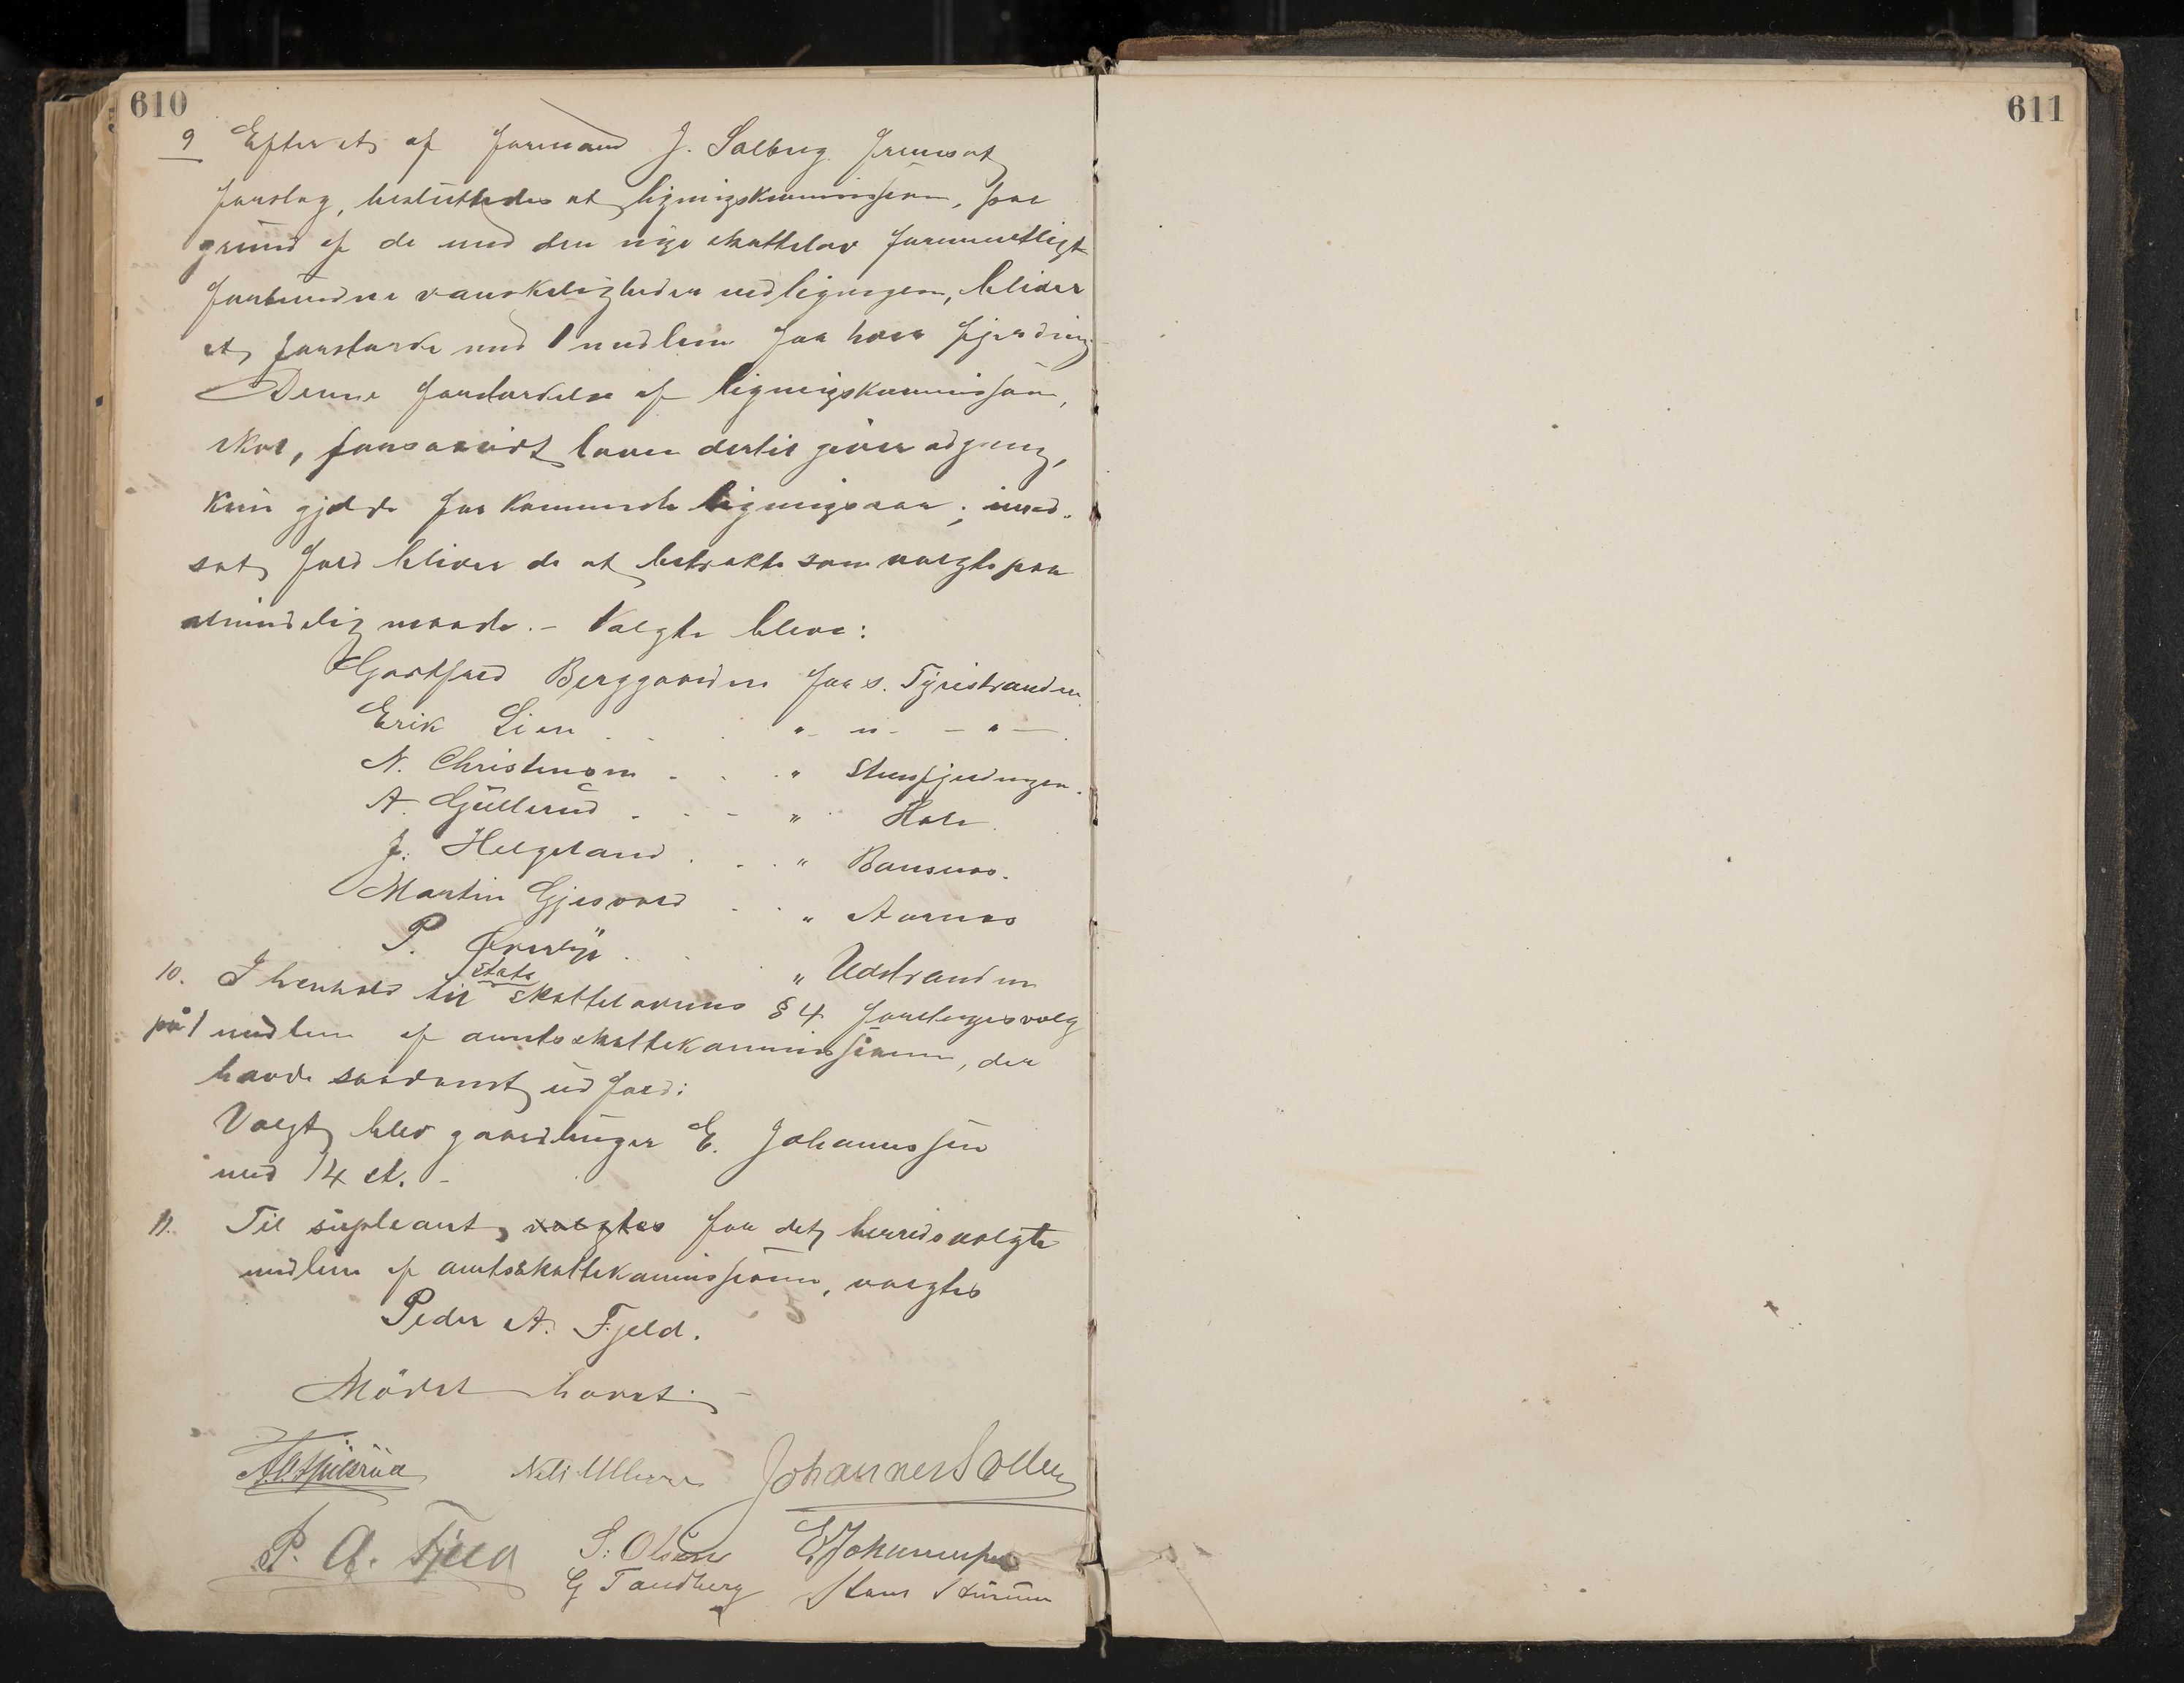 610
611
9 Efter et af formand J. Solberg fremsat
forslag, besluttedes at ligningskommissionen, paa
grund af de med den nye skattelov formentligt
forbundne vanskeligheder ved ligningen, bliver
at forstærke med 1 medlem for hver fjerding
Denne forstærkelse af ligningskommissionen,
skal, forsaavidt loven dertil giver adgang,
kun gjælde for kommende ligningsaar; i mod-
sat fald bliver de at betrakte som valgte paa
almindelig maade. - Valgte blev:
Gartfred Berggaarden for s. Tyristranden
Erik Lien . . . " n. - " -
N. Christensen . . . " Stensfjerdingen.
A. Gullerud . . - " Hole.
J. Helgeland . . . " Bønsnæs.
Martin Gjesvold . . " Aarnæs
P. . . " Utstranden
10. I henhold til stats skattelovens § 4 foretoges valg
på 1 medlem af amtsskattekommissionen, der
havde saadant udfald:
Valgt blev gaardbruger E. Johannessen
med 14 st. -
11. Til supleant, valgtes for det herredsvalgte
medlem af amtsskattekommissionen, valgtes
Peder A. Fjeld.
Mödet hævet. -
Johannes Solberg
P. A. Fjeld S. Olsen E Johannessen
G Tandberg Hans